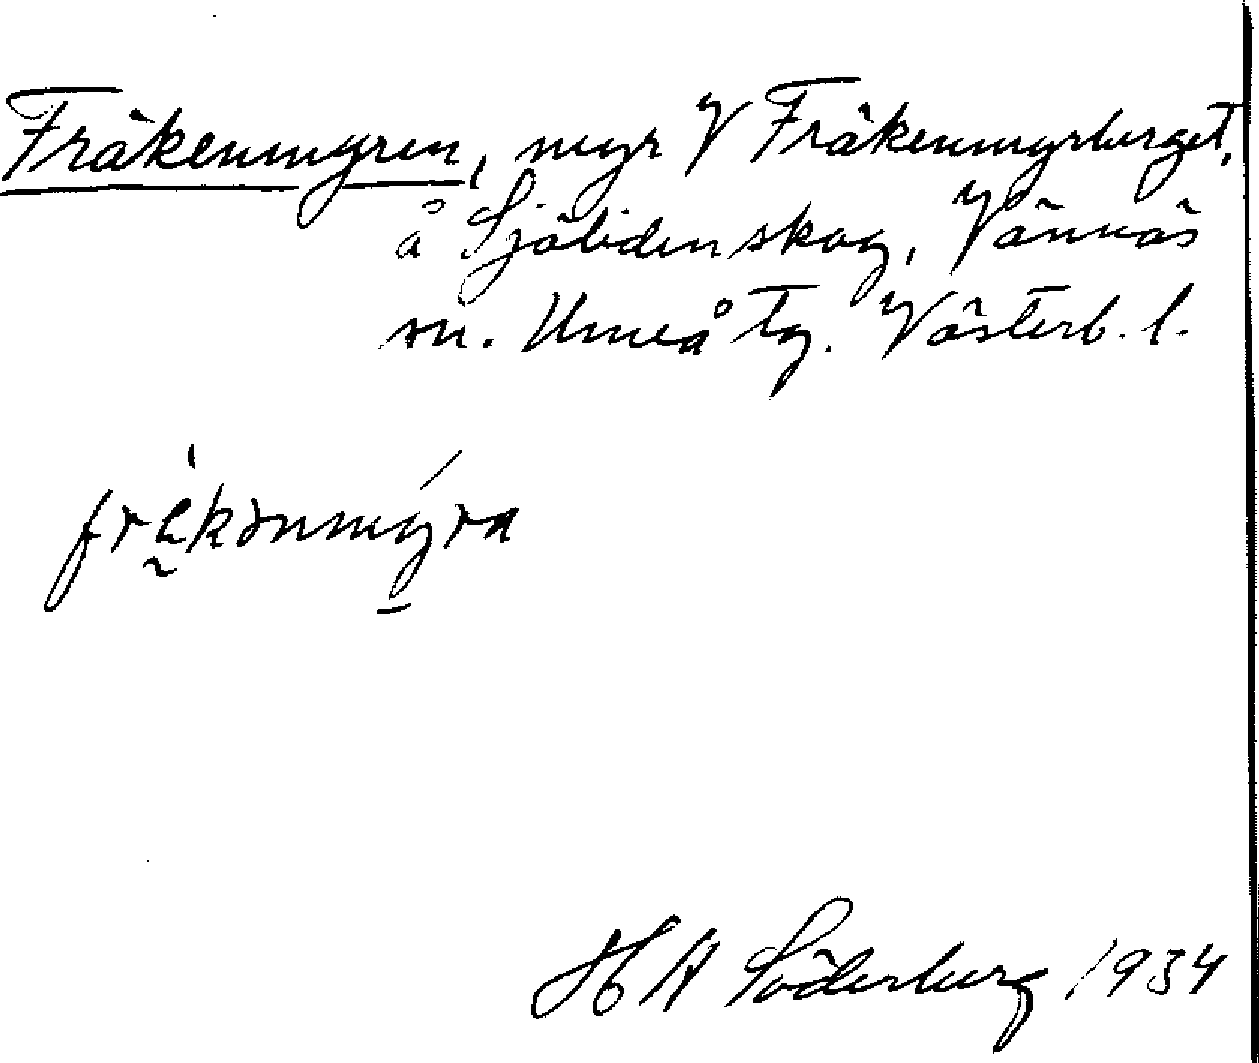 Fräkenmyren, myr V Fräkenmyrberget,
å Sjölidens skog, Vännäs
sn. Umeå tg. Västerb. l.
H A Söderberg 1934